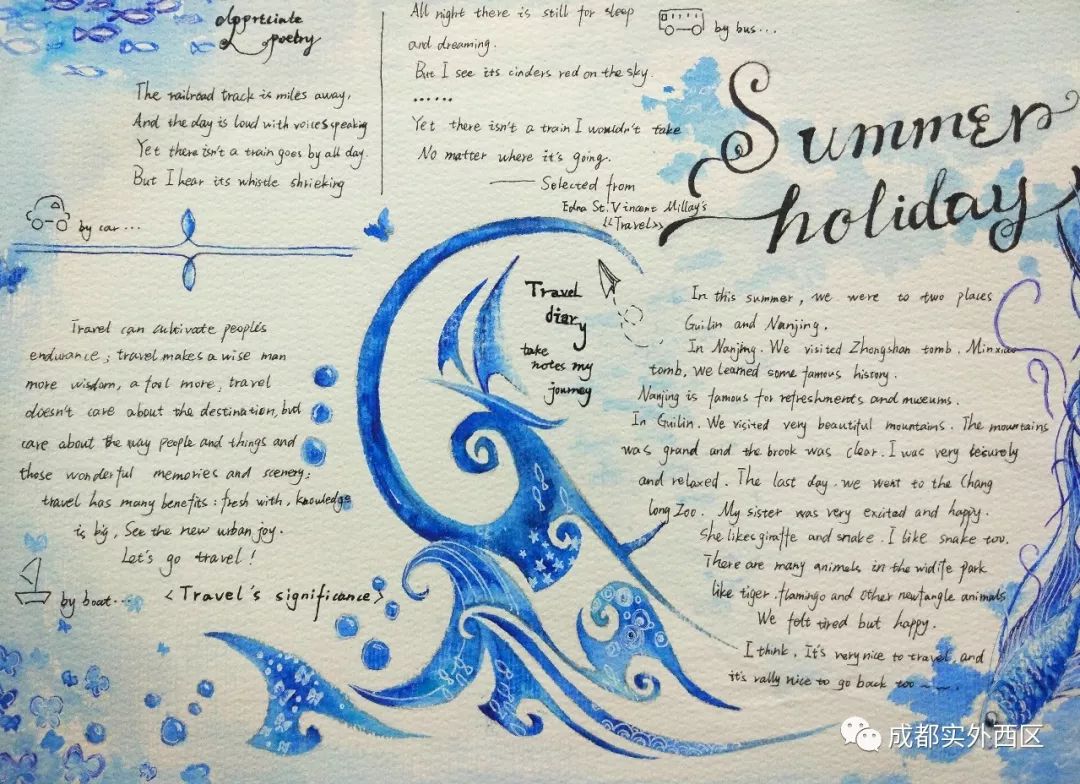 Appreciate
poetry
The railroad track is miles away,
And the day is loud with voices speaking
Yet there isn't a train goes by all day.
But I hear its whistle shrieking
All night there is still for sleep
and dreaming.
But I see its cinders red on the sky.
......
Yet there isn't a train I wouldn't take
No matter where it's going.
—— Selected from
Edna St. Vincent Millay's
《Travel》
by bus...
Summer
holiday
by car...
Travel can cultivate people's
endurance; travel makes a wise man
more wisdom, a fool more; travel
doesn't care about the destination, but
care about the way people and things and
those wonderful memories and scenery;
travel has many benefits: fresh with, knowledge
is big, See the new urban joy.
Let's go travel!
<Travel's significance>
by boat...
Travel
diary
take
notes my
journey
In this summer, we were to two places
Guilin and Nanjing.
In Nanjing. We visited Zhongshan tomb. Minxiao
tomb, we learned some famous history.
Nanjing is famous for refreshments and museums.
In Guilin. We visited very beautiful mountains. The mountains
was grand and the brook was clear. I was very leisurely
and relaxed. The last day. we went to the Chang
long Zoo. My sister was very excited and happy.
She likes giraffe and snake. I like snake too.
There are many animels in the widlfe park
like tiger. flamingo and other newfangle animals
We felt tired but happy.
I think. It's very nice to travel, and
it's rally nice to go back too ~~.
成都实外西区